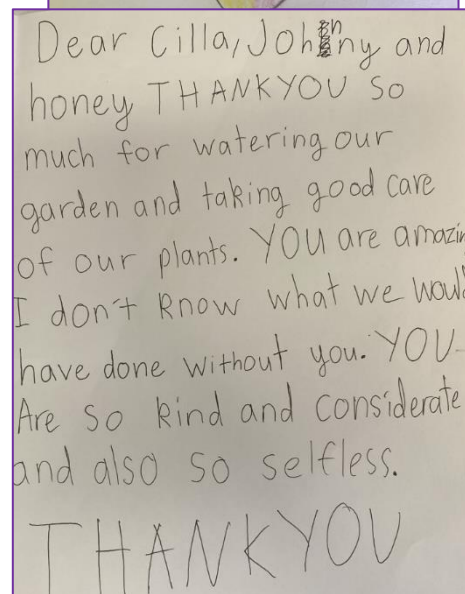 Dear Cilla, Johnny and
honey THANKYOU so
much for watering our
garden and taking good care
of our plants. YOU are amazin
I don't know what we would
have done without you. YOU
Are so kind and considerate
and also so selfless.
THANKYOU